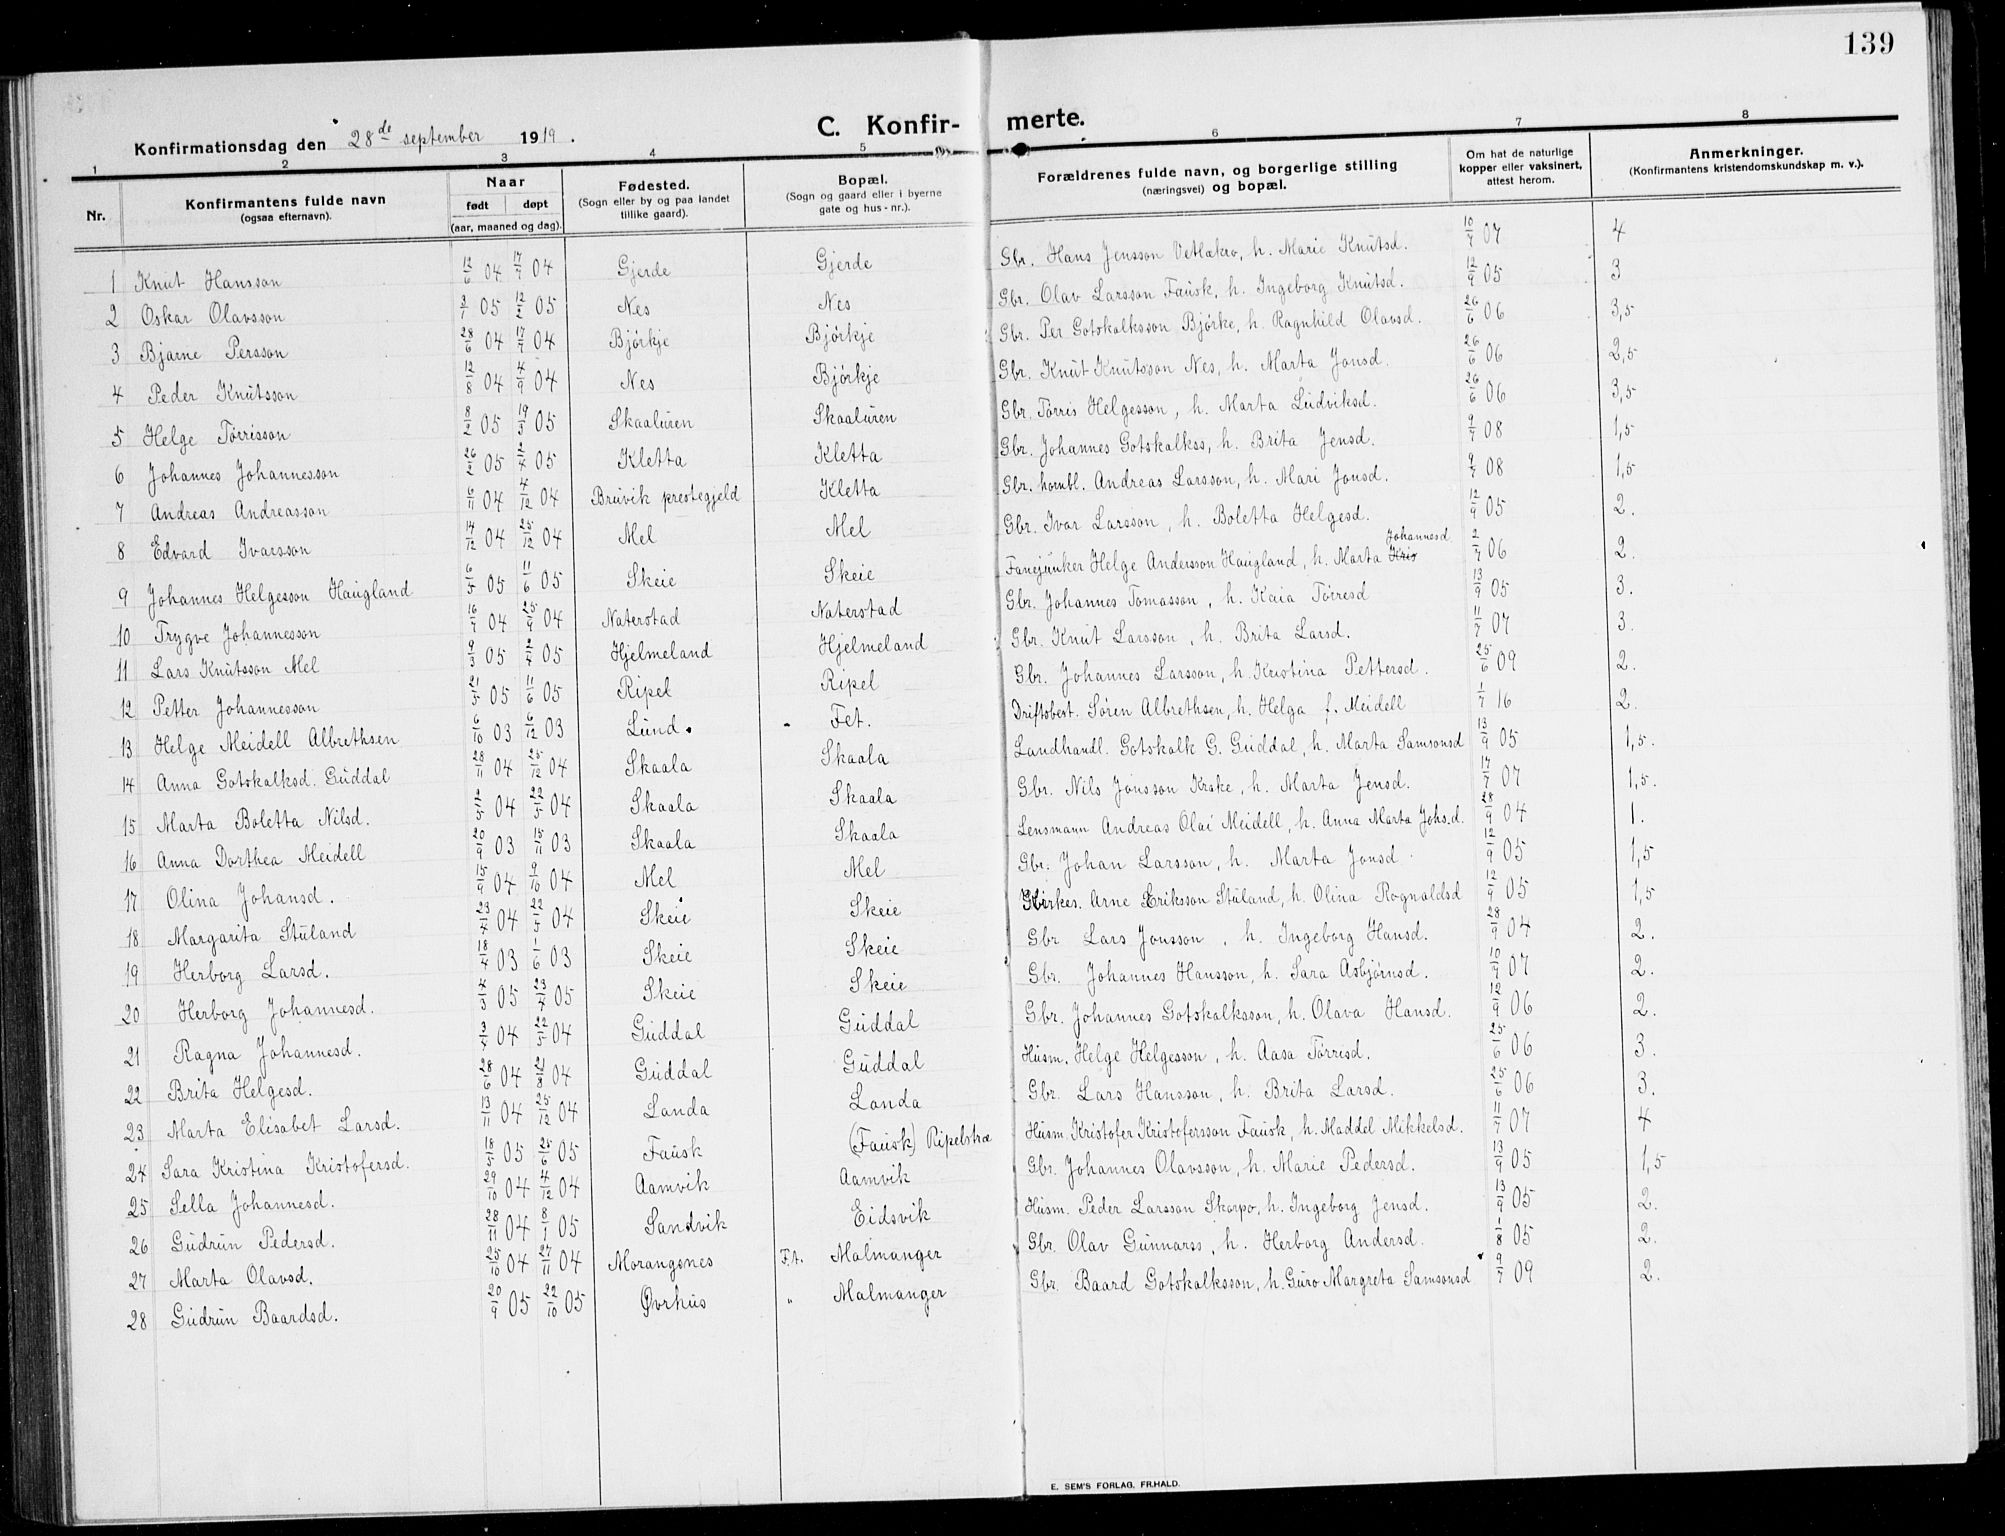 139
Konfirmationsdag den 28de september 1919.
C. Konfirmerte.
1 2 3 4 5 6 7 8
Nr. | Konfirmantens fulde navn (ogsaa efternavn). | Naar født døpt (aar, maaned og dag). | Fødested. (Sogn eller by og paa landet tillike gaard). | Bopæl. (Sogn og gaard eller i byerne gate og hus-nr.). | Forældrenes fulde navn, og borgerlige stilling (næringsvei) og bopæl. | Om hat de naturlige kopper eller vaksinert, attest herom. | Anmerkninger. (Konfirmantens kristendomskundskap m. v.).
1 Knut Hansson 12/6 04 17/7 04 Gjerde Gjerde Gbr. Hans Jensson Vetlakro, h. Marie Knutsd. 10/7 07 4
2 Oskar Olavsson 3/1 05 12/2 05 Nes Nes Gbr. Olav Larsson Fausk, h. Ingeborg Knutsd. 12/9 05 3
3 Bjarne Persson 28/6 04 17/7 04 Bjørkje Bjørkje Gbr. Per Gotskalksson Bjørke, h. Ragnhild Olavsd. 26/6 06 3,5
4 Peder Knutsson 12/8 04 4/9 04 Nes Bjørkje Gbr. Knut Knutsson Nes, h. Marta Jonsd. 26/6 06 2,5
5 Helge Tørrisson 8/2 05 19/3 05 Skaaluren Skaaluren Gbr. Tørris Helgesson, h. Marta Ludviksd. 26/6 06 3,5
6 Johannes Johannesson 26/2 05 2/4 05 Kletta Kletta Gbr. Johannes Gotskalkss, h. Brita Jensd. 9/7 08 1,5
7 Andreas Andreasson 6/11 04 4/12 04 Bruvik prestegjeld Kletta Gbr. hornbl. Andreas Larsson, h. Mari Jonsd. 9/7 08 1,5
8 Edvard Ivarsson 14/12 04 25/12 04 Mel Mel Gbr. Ivar Larsson, h. Boletta Helgesd. 12/9 05 2.
9 Johannes Helgesson Haugland 6/5 05 11/6 05 Skeie Skeie Fanejunker Helge Andersson Haugland, h. Marta Johannesd 2/7 06 2.
10 Trygve Johannesson 16/7 04 25/9 04 Naterstad Naterstad Gbr. Johannes Tomasson, h. Kaia Tørresd 13/9 05 3.
11 Lars Knutsson Mel 9/3 05 2/4 05 Hjelmeland Hjelmeland Gbr. Knut Larsson, h. Brita Larsd. 11/7 07 3.
12 Petter Johannesson 21/5 05 11/6 05 Ripel Ripel Gbr. Johannes Larsson, h. Kristina Pettersd. 25/6 09 2.
13 Helge Meidell Albrethsen 6/10 03 6/12 03 Lund. Fet. Driftsbest. Søren Albrethsen, h. Helga f. Meidell 1/7 16 2.
14 Anna Gotskalksd. Guddal 28/11 04 25/12 04 Skaala Skaala Landhandl. Gotskalk G. Guddal, h. Marta Samsonsd 13/9 05 1,5.
15 Marta Boletta Nilsd. 2/5 04 22/5 04 Skaala Skaala Gbr. Nils Jonsson Krake, h. Marta Jensd. 17/7 07 1,5.
16 Anna Dorthea Meidell 20/9 03 15/11 03 Skaala Skaala Lensmann Andreas Olai Meidell, h. Anna Marta Johs.d. 28/9 04 1.
17 Olina Johansd. 15/9 04 9/10 04 Mel Mel Gbr. Johan Larsson, h. Marta Jonsd. 12/9 05 1,5
18 Margarita Stuland 23/4 04 22/5 04 Skeie Skeie Kirkes. Arne Eriksson Stuland, h. Olina Rognaldsd 12/9 05 1,5
19 Herborg Larsd. 18/4 03 1/6 03 Skeie Skeie Gbr Lars Jonsson, h. Ingeborg Hansd. 28/9 04 2.
20 Herborg Johannesd. 4/3 05 23/4 05 Skeie Skeie Gbr. Johannes Hansson, h. Sara Asbjørnsd. 10/7 07 2.
21 Ragna Johannesd. 3/4 04 22/5 04 Guddal Guddal Gbr. Johannes Gotskalksson, h. Olava Hansd. 12/9 06 2.
22 Brita Helgesd. 28/6 04 21/8 04 Guddal Guddal Husm. Helge Helgesson, h. Aasa Tørrisd. 25/6 06 3.
23 Marta Elisabet Larsd. 13/11 04 25/12 04 Landa Landa Gbr. Lars Hansson, h. Brita Larsd. 25/6 06 3.
24 Sara Kristina Kristofersd. 18/5 05 25/6 05 Fausk (Fausk) Ripelstræ Husm. Kristofer Kristofersson Fausk, h. Maddel Mikkelsd. 11/7 07 4
25 Sella Johannesd. 29/10 04 4/12 04 Aamvik Aamvik Gbr. Johannes Olavsson, h. Marie Pedersd. 13/9 05 1,5
26 Gudrun Pedersd. 28/11 04 8/1 05 Sandvik Eidsvik Husm. Peder Larsson Skorpo, h. Ingeborg Jensd. 13/9 05 2.
27 Marta Olavsd. 25/10 04 27/11 04 Morangsnes F.t. Malmanger Gbr. Olav Gunnarss, h. Herborg Andersd. 1/8 05 2.
28 Gudrun Baardsd. 20/9 05 22/10 05 Øvrhus " Malmanger Gbr. Baard Gotskalksson, h. Guro Margreta Samsonsd 9/7 09 2.
E. SEM'S FORLAG, FR.HALD.